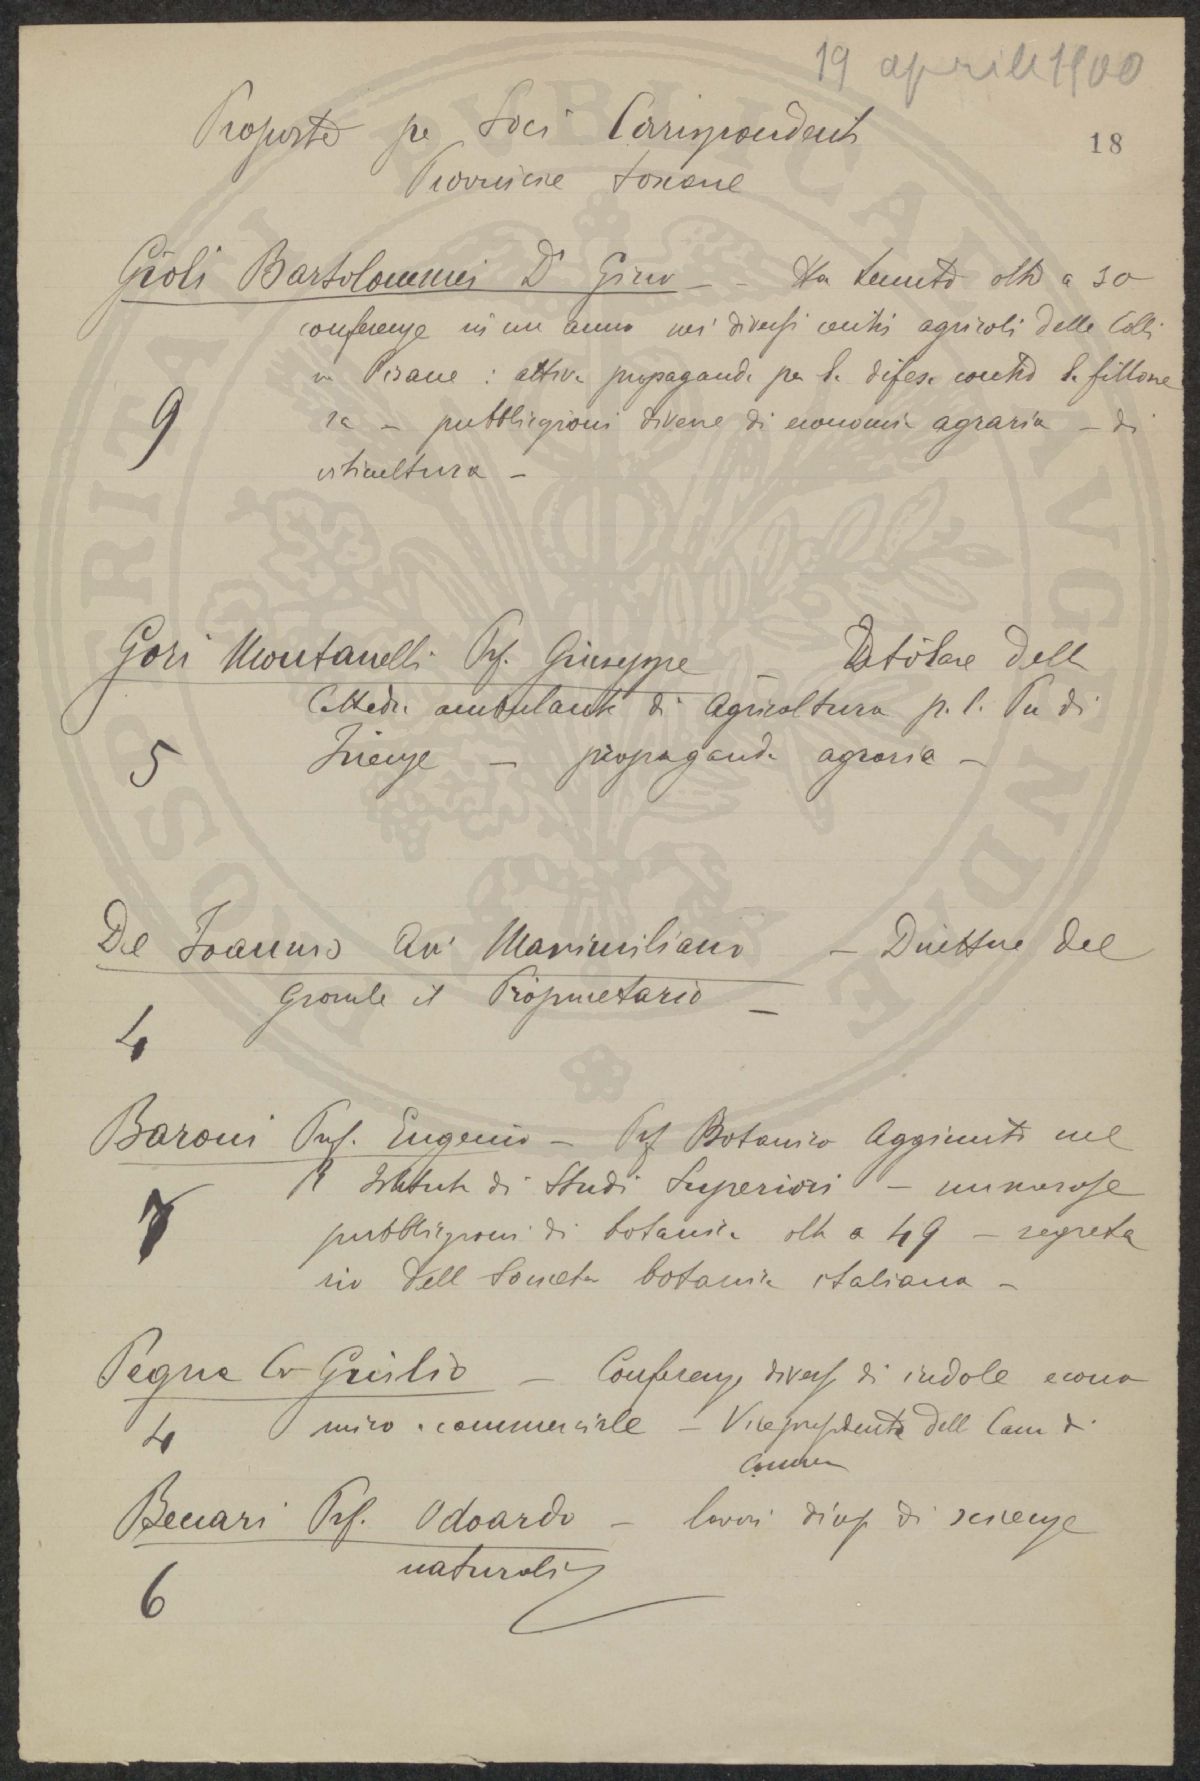 19 aprile 1900
18
Proposte pe Soci Corrispondenti
Provincie Toscane
Gioli Bartolommei Dr Gino - - Ha tenuto oltre a 30
conferenze in un anno nei diversi centri agricoli delle Colli
ne Pisane : attiva propaganda per la difesa contro la fillosse
ra - pubblicazioni diverse di economia agraria - di
viticultura -
9
Gori Montanelli Prof. Giuseppe Titolare della
Cattedra ambulante di Agricoltura p. l. Pr di
Firenze - propaganda agraria -
5
Del Avv Massimiliano - Direttore del
Giornale il Proprietario -
4
Baroni Prof. Eugenio - Prof Botanico Aggiunto nel
R Istituto di Studi Superiori - numerose
pubblicazioni di botanica oltre a 49 - segreta
rio dell Societa botanica italiana -
7
Pegna Cav Giulio - Conferenze diverse di indole econo
mico - commerciale - Vicepresidente dell Cam di
Comm
4
Beccari Prof. Odoardo - lavori div di scienze
naturali
6
POSTERITATI PVBLICAE AVGENDAE